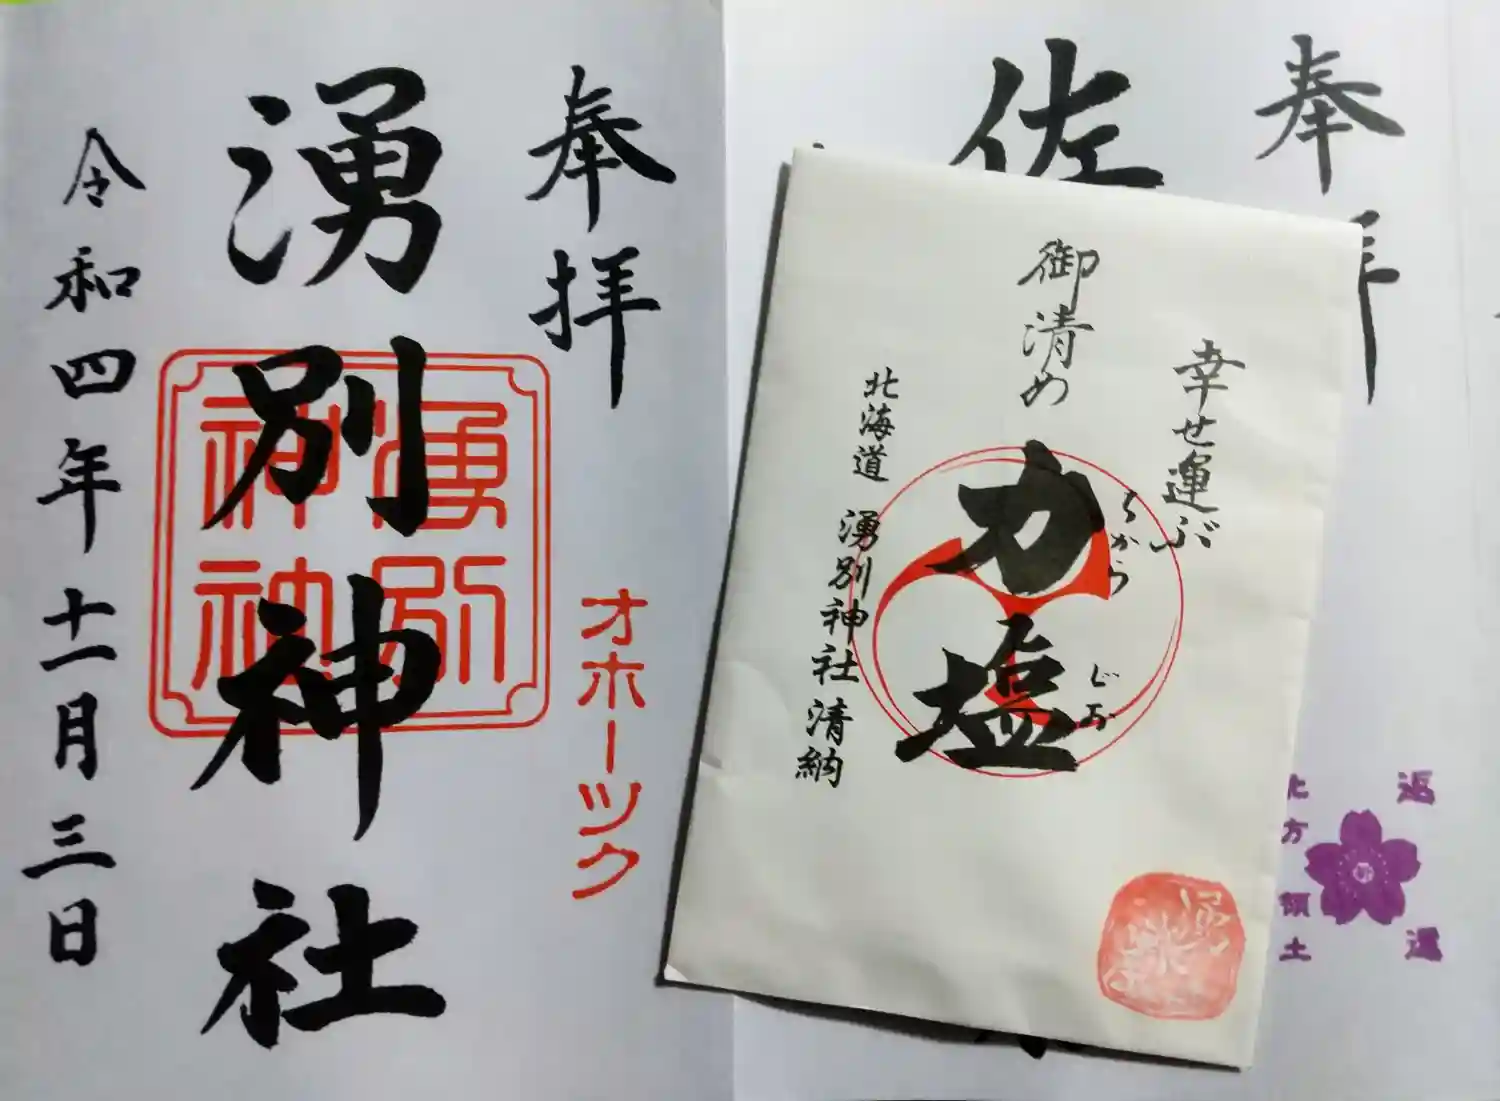 奉拝
湧別神社
湧別
神社
オホーツク
令和四年十一月三日
奉拝
佐
幸せ運ぶ
御清め
力塩
ちから
じお
北海道 湧別神社 清納
返還
北方領土